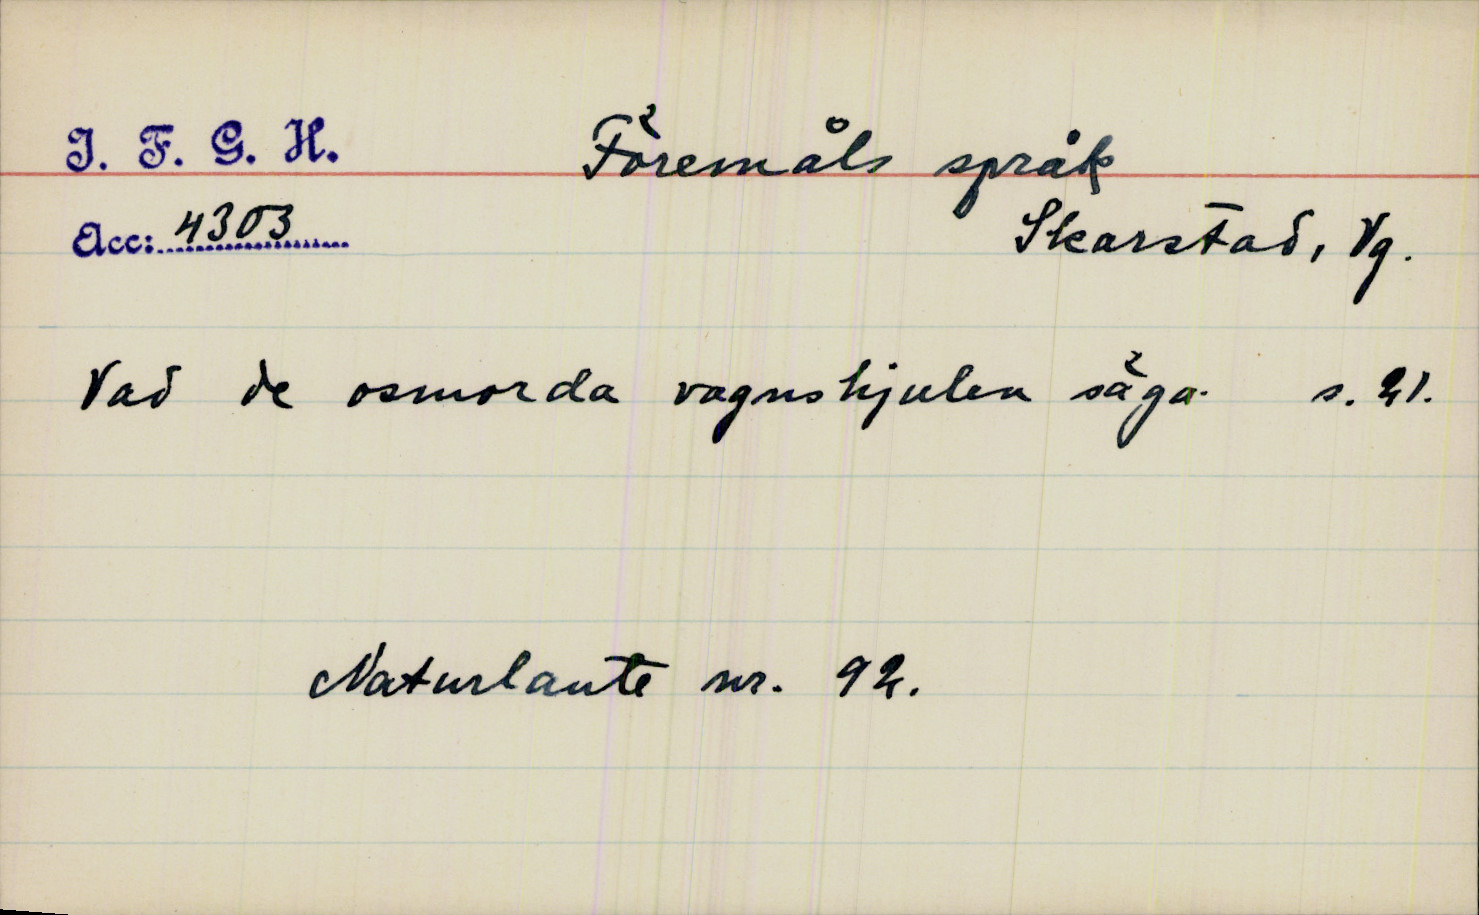 I. F. G. H.
Föremåls språk
Acc: 4303
Skarstad, Vg.
Vad de osmorda vagnshjulen säga. s. 21.
Naturlaute nr. 92.